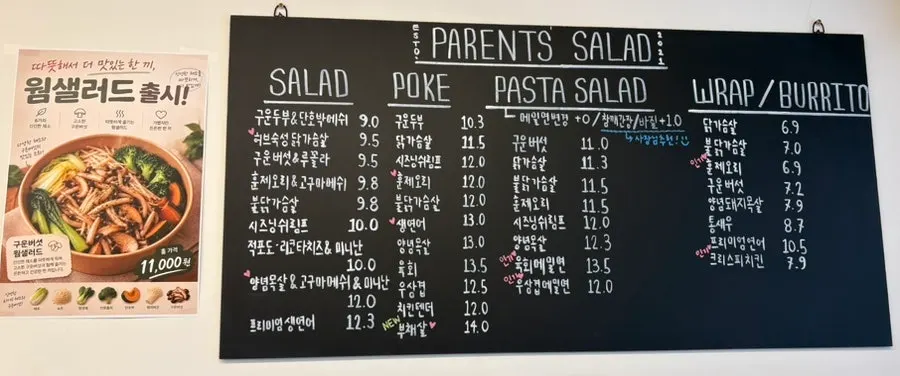 따뜻해서 더 맛있는 한 끼,
웜샐러드 출시!
구운버섯
웜샐러드
총 가격
11,000원
ESTD.
PARENTS' SALAD
2021
SALAD
구운두부&단호박메쉬 9.0
허브숙성 닭가슴살 9.5
구운버섯&루꼴라 9.5
훈제오리&고구마메쉬 9.8
불닭가슴살 9.8
시즈닝쉬림프 10.0
적포도·리코타치즈&미니난
10.0
양념목살&고구마메쉬&미니난
12.0
프리미엄생연어 12.3
POKE
구운두부 10.3
닭가슴살 11.5
시즈닝쉬림프 12.0
훈제오리 12.0
불닭가슴살 12.0
생연어 13.0
양념목살 13.0
육회 13.5
우삼겹 12.5
치킨텐더 12.0
NEW 부채살 14.0
PASTA SALAD
메밀면변경 +0 / 참깨간장/바질+1.0
사장님추천!
구운버섯 11.0
닭가슴살 11.3
불닭가슴살 11.5
훈제오리 11.5
시즈닝쉬림프 12.0
양념목살 12.3
인기 육회메밀면 13.5
인기 우삼겹메밀면 12.0
WRAP / BURRITO
닭가슴살 6.9
불닭가슴살 7.0
인기 훈제오리 6.9
구운버섯 7.2
양념돼지목살 7.9
통새우 8.7
프리미엄연어 10.5
인기 크리스피치킨 7.9